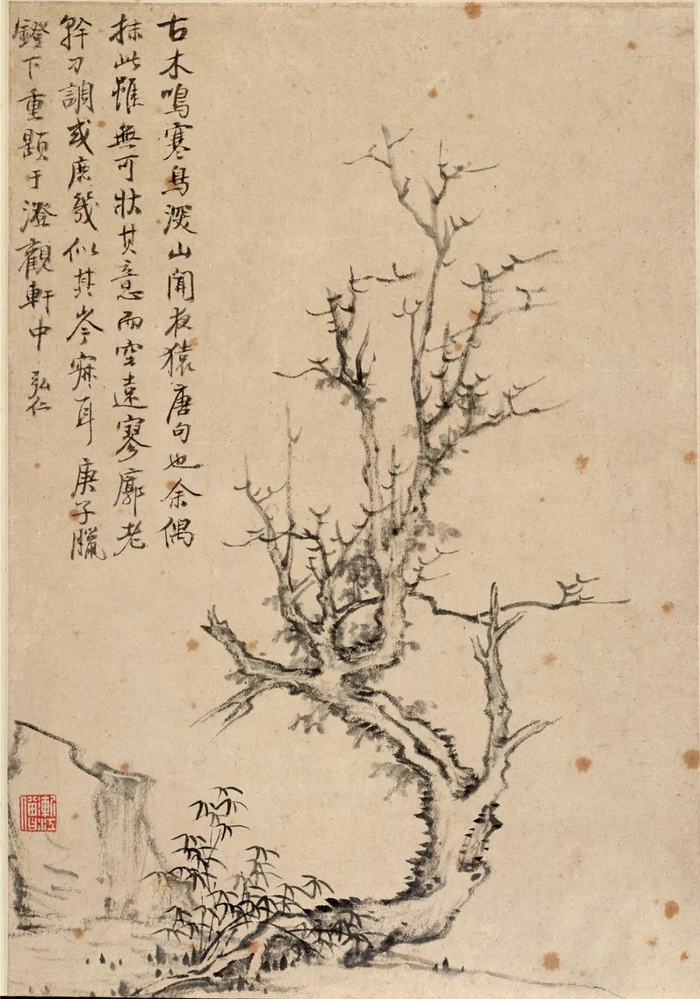 古木鳴寒鳥深山聞夜猿唐句也余偶
抹此雖無可狀其意而空遠寥廓老
幹刁調或庶幾似其岑寂耳 庚子臘
鐙下重題于澄觀軒中 弘仁
漸江僧